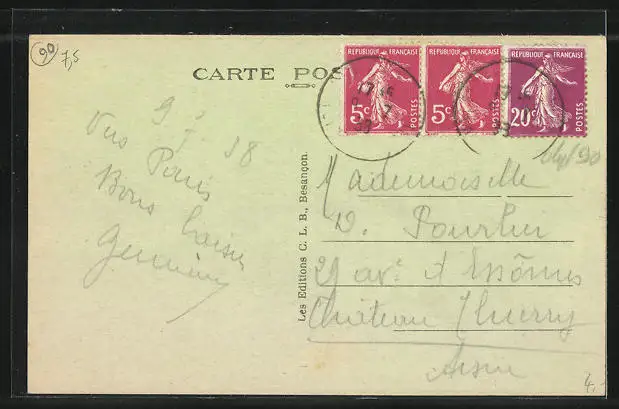 90
7,5
CARTE POS
REPUBLIQUE FRANÇAISE
5c
POSTES
REPUBLIQUE FRANÇAISE
5c
POSTES
REPUBLIQUE FRANÇAISE
20c
POSTES
38
Vus Paris
Bons baisers
Germaine
Les Editions C. L. B., Besançon.
Mademoiselle
D.
29 avе d'Essômes
Château Thierry
Aisne
4,-